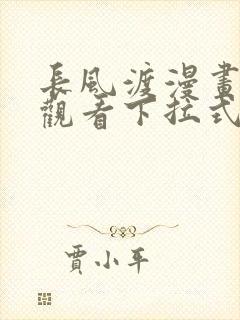 長風渡漫畫
觀看下拉式
賈小平